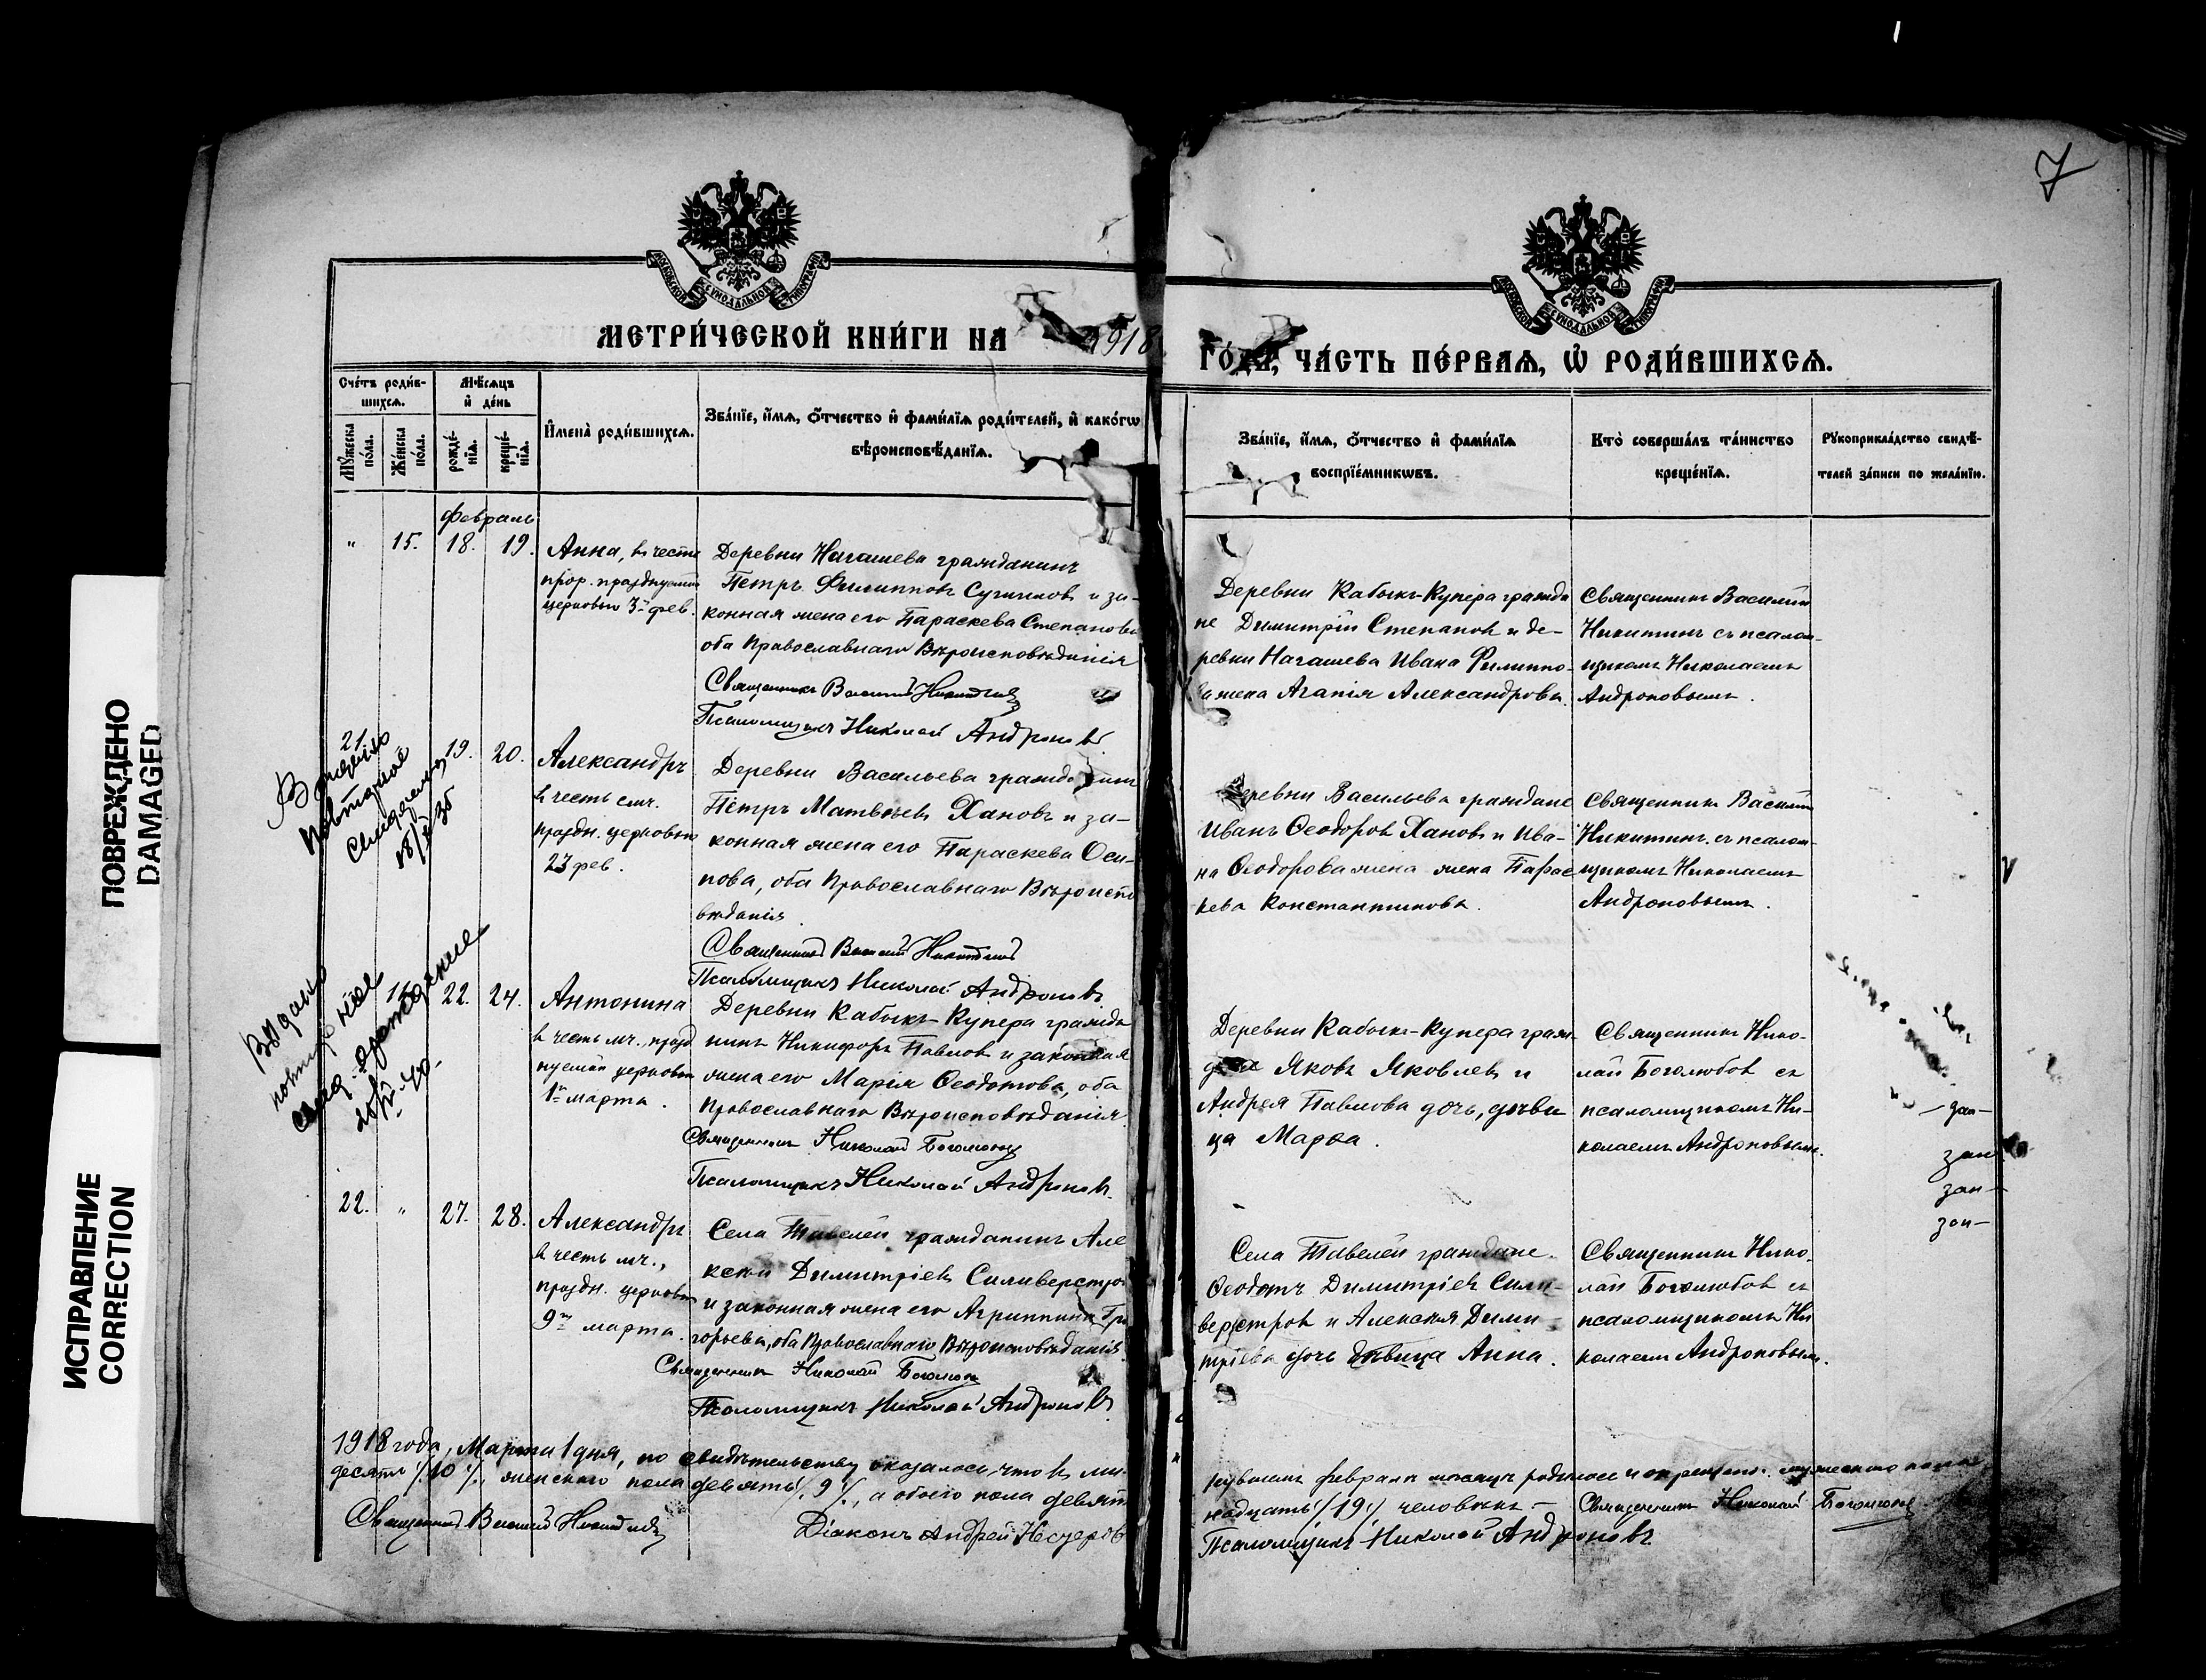 ПОВРЕЖДЕНО
DAMAGED
ИСПРАВЛЕНИЕ
CORRECTION
7
МЕТРИ́ЧЕСКОЙ КНИ́ГИ НА 1918
ГО́ДЪ, ЧА́СТЬ ПЕ́РВАѦ, Ѡ҆ РОДИ́ВШИХСѦ.
Сче́тъ роди́в-
шихсѧ.
Мꙋ́жеска по́ла.
Же́нска по́ла.
Мѣ́сѧцъ
и҆ де́нь
рожде́-
нїѧ.
креще́-
нїѧ.
И҆мена̀ роди́вшихсѧ.
Зва́нїе, и҆́мѧ, ѻ҆́тчество и҆ фами́лїѧ роди́телей, и҆ како́гѡ
вѣроисповѣ́данїѧ.
Зва́нїе, и҆́мѧ, ѻ҆́тчество и҆ фами́лїѧ
воспрїе́мникѡвъ.
Кто̀ соверша́лъ та́инство
креще́нїѧ.
Рꙋкоприкла́дство свидѣ́-
телей за́писи по жела́нїю.
Февраль
" 15. 18. 19.
Анна, въ честь
прор. празднуемой
церковью 3го фев.
Деревни Нагашева гражданинъ
Петръ Филипповъ и за-
конная жена его Параскева Степанова
оба Православнаго Вѣроисповѣданія
Священникъ Василій Никитинъ
Псаломщикъ Николай Андроновъ
Деревни Кабыкъ-Купера гражда
не Димитрій Степановъ и де-
ревни Нагашева Ивана Филиппо-
ва жена Агапія Александрова.
Священникъ Василій
Никитинъ съ псалом-
щикомъ Николаемъ
Андроновымъ.
21 19. 20.
Выдано
повторное
Александръ
въ честь смч.
праздн. церковью
23 фев.
Деревни Васильева гражданинъ
Петръ Матвѣевъ Хановъ и за-
конная жена его Параскева Оси-
пова, оба Православнаго Вѣроиспо
вѣданія.
Священникъ Василій Никитинъ
Псаломщикъ Николай Андроновъ
Деревни Васильева граждане
Иванъ Ѳеодоровъ Хановъ и Ива-
на Ѳеодорова жена жена Парас
кева Константинова.
Священникъ Василій
Никитинъ съ псалом-
щикомъ Николаемъ
Андроновымъ.
16 22. 24.
Выдано
повторное
Антонина
въ честь мч., празд
нуемой церковью
1го марта.
Деревни Кабыкъ-Купера гражда
нинъ Никифоръ Павловъ и законная
жена его Марія Ѳеодотова, оба
Православнаго Вѣроисповѣданія.
Священникъ Николай Боголюбовъ
Псаломщикъ Николай Андроновъ.
Деревни Кабыкъ-Купера граж-
дане Яковъ Яковлевъ и
Андрея Павлова дочь, дѣви
ца Марѳа.
Священникъ Нико-
лай Боголюбовъ съ
псаломщикомъ Ни-
колаемъ Андроновымъ.
зап-
зап
зап-
зап-
22. " 27. 28.
Александръ
въ честь мч.,
праздн. церковью
9го марта.
Села Тавелей гражданинъ Але
ксѣй Димитріевъ Силиверстровъ
и законная жена его Агриппина Гри
горьева, оба Православнаго Вѣроисповѣданія.
Священникъ Николай Боголюбовъ
Псаломщикъ Николай Андроновъ
Села Тавелей граждане
Ѳеодотъ Димитріевъ Сили-
верстровъ и Алексѣя Дими
тріева дочь дѣвица Анна.
Священникъ Нико-
лай Боголюбовъ съ
псаломщикомъ Ни
колаемъ Андроновымъ.
1918 года, Марта 1 дня, по свидѣтельству оказалось, что въ ми-
нувшемъ февралѣ мѣсяцѣ родилось и окрещено: мужескаго пола
десять /10/, женскаго пола девять /9/, а обоего пола девят
надцать /19/ человѣкъ –
Священникъ Василій Никитинъ
Діаконъ Андрей Несчеровъ
Священникъ Николай Боголюбовъ
Псаломщикъ Николай Андроновъ